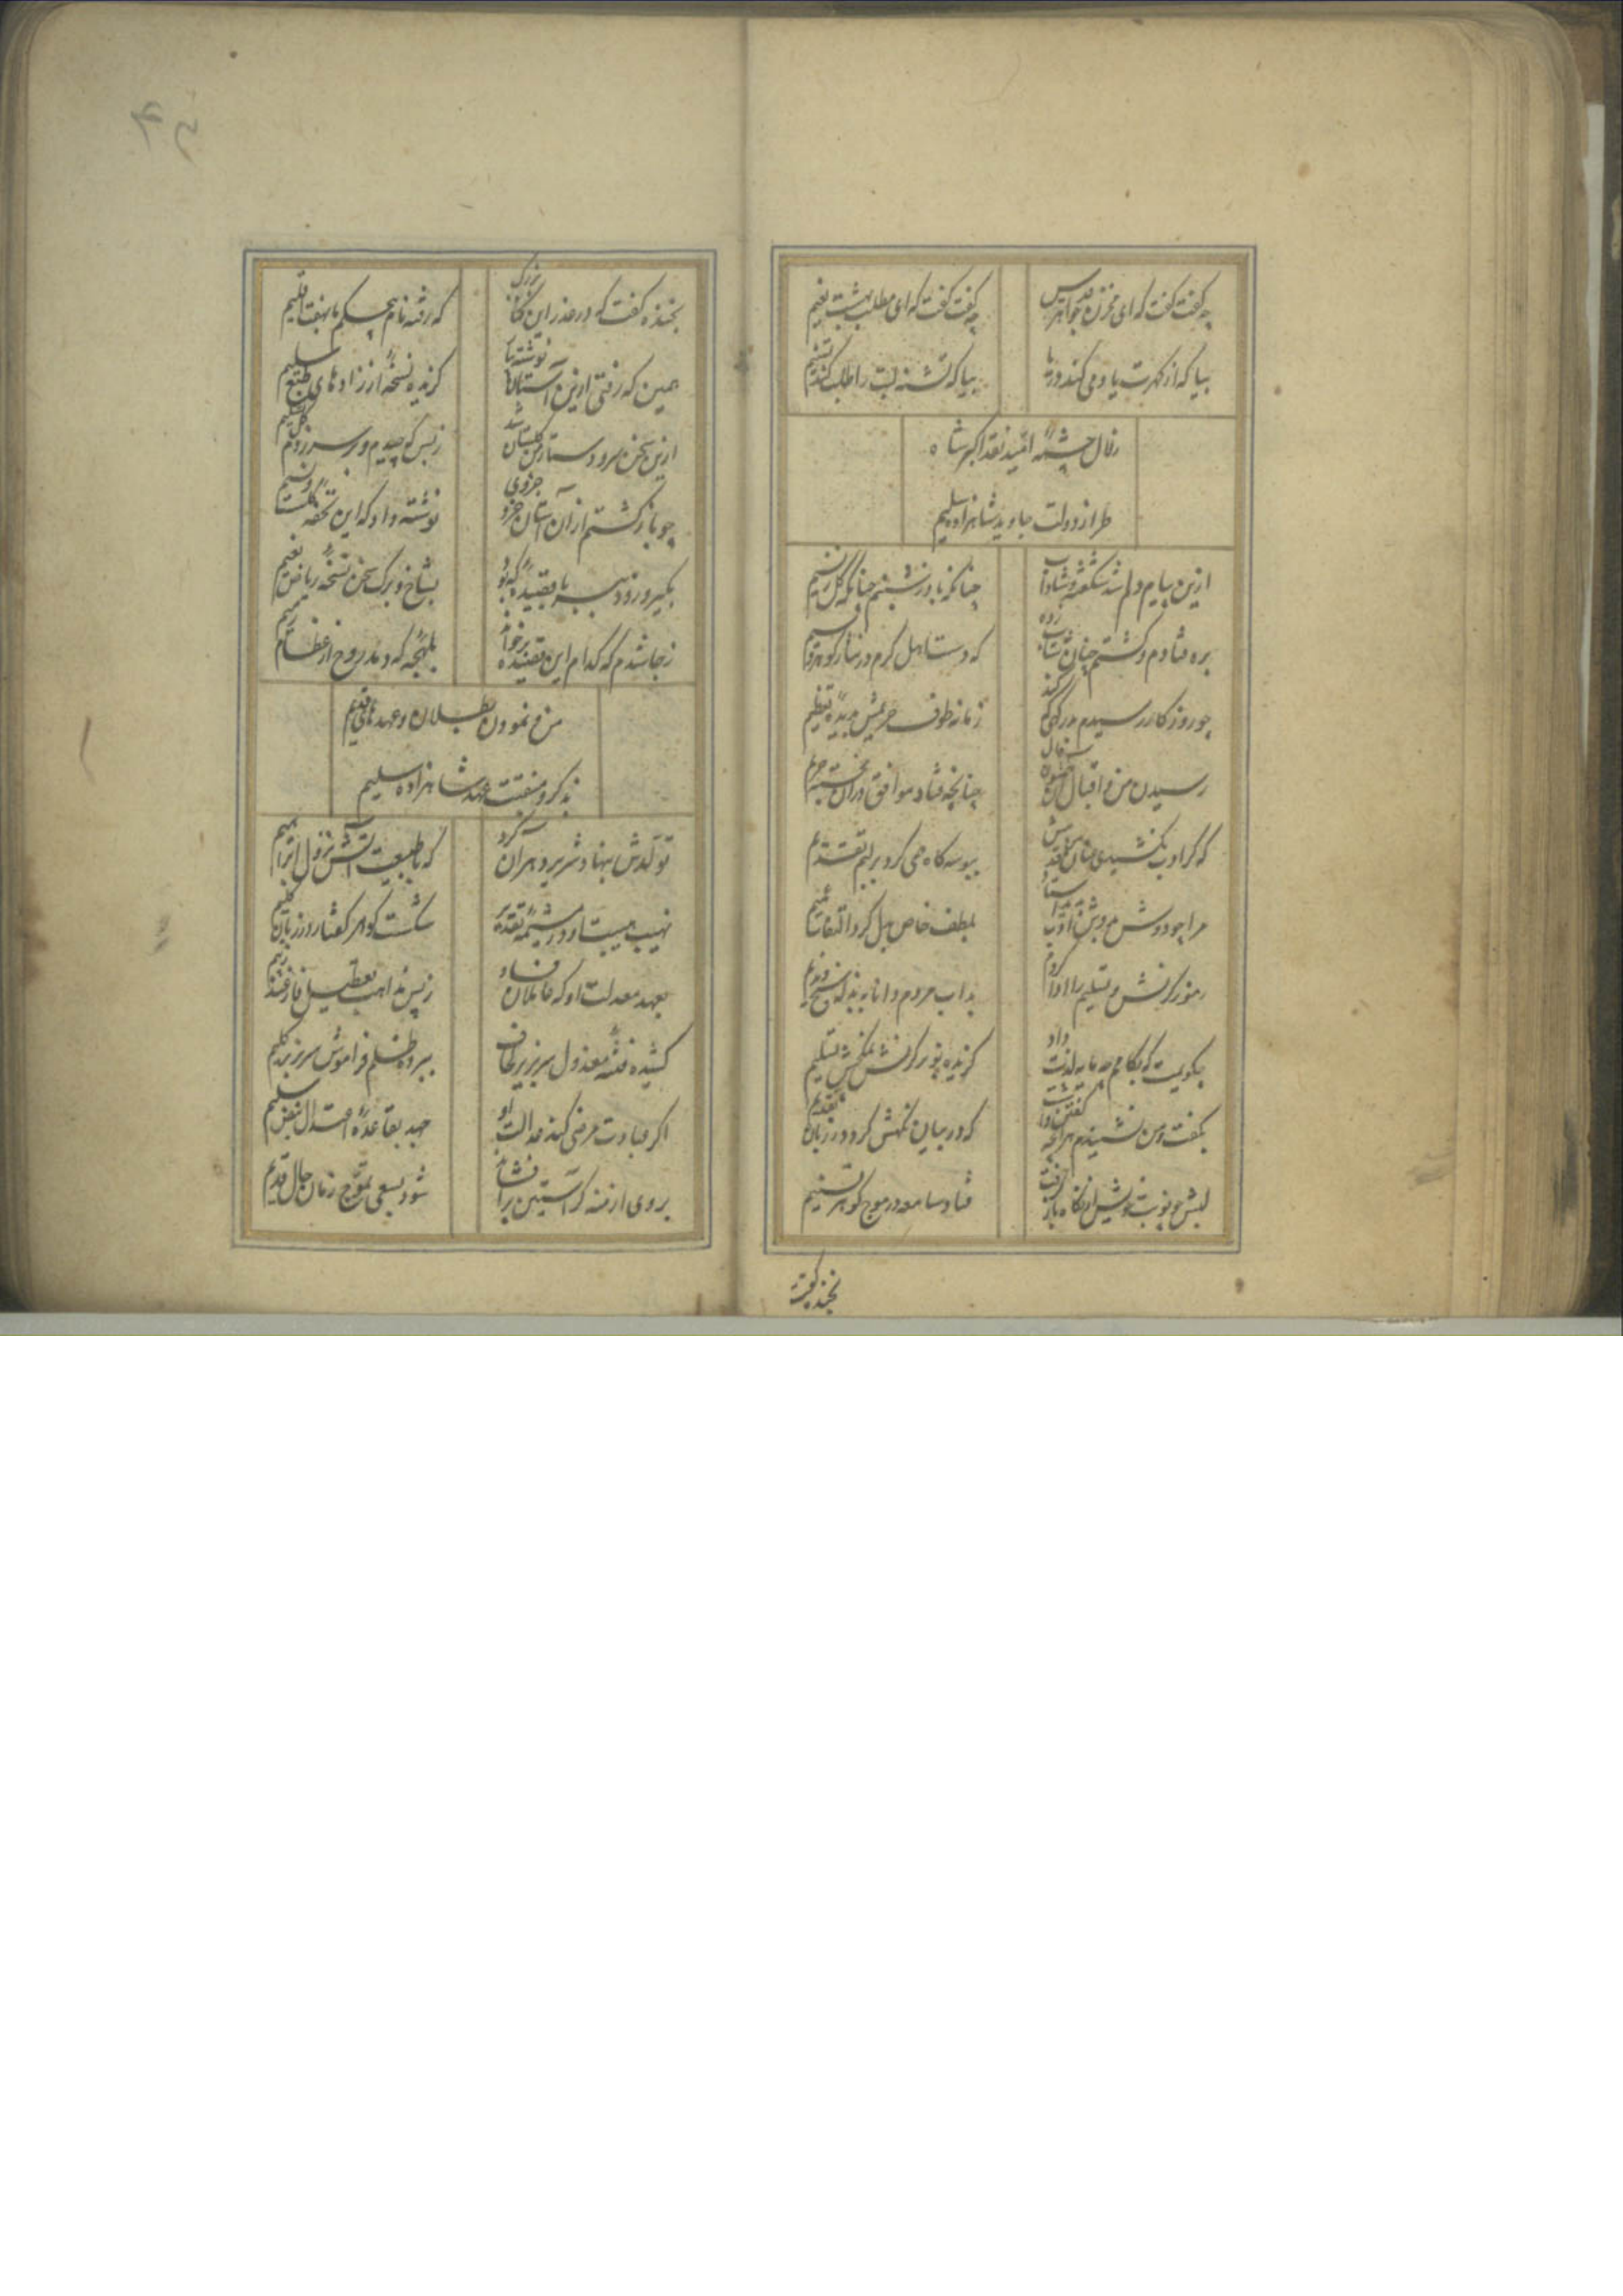 چه گفت گفت که ای مخزن جواهر قدس
چه گفت گفت که ای مطلب بهشت نعیم
بیا که از گهرت یاد می کند دریا
بیا که تشنه لبت را طلب کند تسنیم
زلال چشمهٔ امید نقد اکبر شاه
طراز دولت جاوید شاهزاده سلیم
ازین پیام دلم شد شکفته و شاداب
چنانکه باده ز شبنم چنانکه گل ز نسیم
بره فتادم و گشتم چنان شتاب زده
که دست اهل کرم در نثار گوهر و سیم
چو روزگار رسیدم بدرگهی که کند
زمانه طوف حریمش بدیدهٔ تعظیم
رسیدن من و اقبال
چنانچه فتاد موافق دران خجسته حریم
که گر ادب نکشیدی عنان
ببوسه گاه همی کرد بر لبم تقدیم
مرا چو دوش بدوش ادب بدید استاد
بلطف خاص بدل کرد التفات عمیم
رموز کرنش و تسلیم را ادا کردم
بداب مردم دانا نه بذلهٔ سنج ندیم
بگویمت که بکامم چه مایه لذت داد
گزیده بود کرنش نمکچش تسلیم
بگفت و من نشنیدم هر آنچه گفتن داشت
که در بیان نگهش کرد در زبان تقدیم
لبش چو نوبت خویش از نگاه باز گرفت
فتاد سامعه در موج گوهر تسنیم
بخنده گفت
بخنده گفت که در عذر این گناه بزرگ
که رفته نام بحکم با هفت اقلیم
همین که رفتی ازین آستان نوشته بیار
گزیده نسخه از زادهای طبع سلیم
ازین سخن سر و دستار من گلستان شد
ز بس که چیدم و بر سر زدم گل تسلیم
چو باز گشتم از آن آستان جزو جزوی
نوشته داد که این تحفه
بگیر و زود ببر تا بقیتید که بود
بشاخ و برگ سخن نسخهٔ ریاض نعیم
ز جا شدم که کدام این قصیده برخوانم
بلهجه که دمد روح از عظام رمیم
من و نمودن بطلان و عهدهای قدیم
بذکر و منقبت عهد شاهزاده سلیم
تولدش بنهاد شریر دهر آن کرد
که با طبیعت آتش نزول ابراهیم
نهیب هیبت او در مشیمهٔ تقدیر
شکست گوهر گفتار در زبان کلیم
بعهد معدلت او که عاملان فساد
ز بیم نهب تعطیل فارغند ز بیم
کشیده فتنهٔ معزول سر بزیر لحاف
ببرده ظلم فراموش سر بزیر گلیم
اگر نه بادت مرضی کند عدالت او
جهد بقاعدهٔ اعتدال نبض سلیم
بروی ازمنه گر آستین برافشاند
شود بسعی تموج زمان حال قدیم